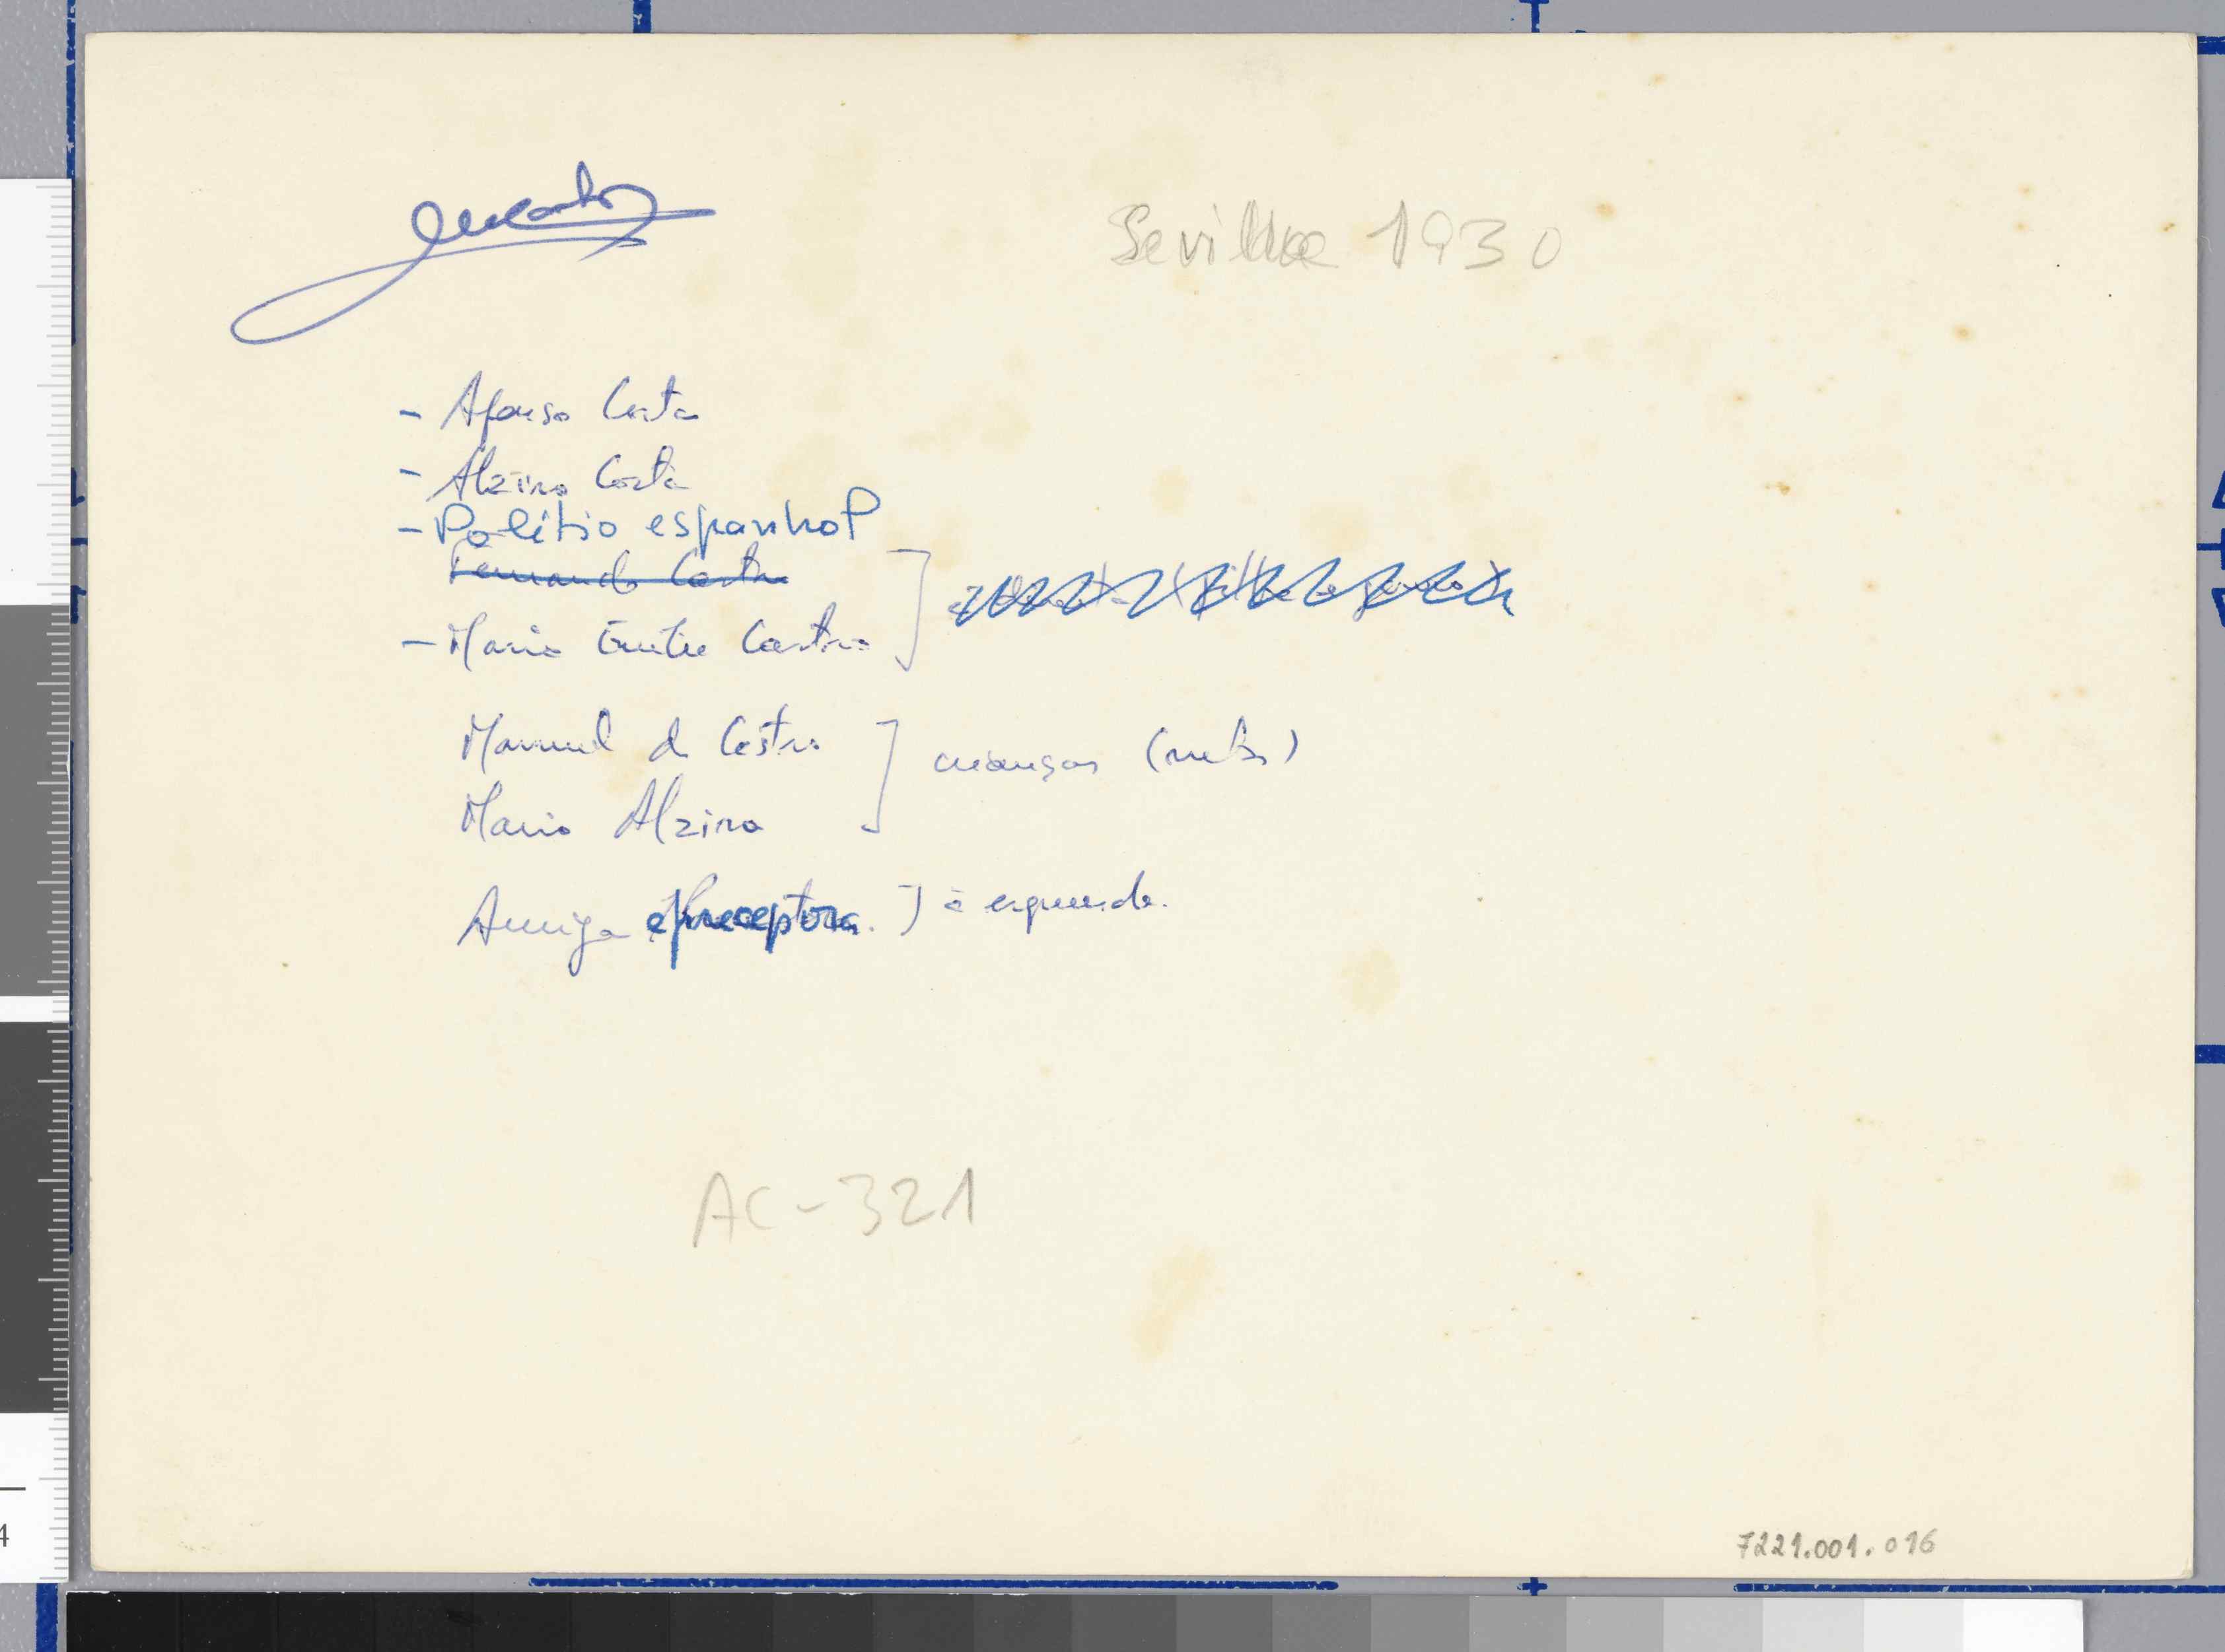 Sevilha 1930
- Afonso Costa
- Alzira Costa
- Polítio espanhol
Fernando Castro
- Maria Emília Castro
Manuel de Castro ] crianças (netos)
Maria Alzira
Amiga e preceptora. ] à esquerda.
AC-321
7221.001.016
4